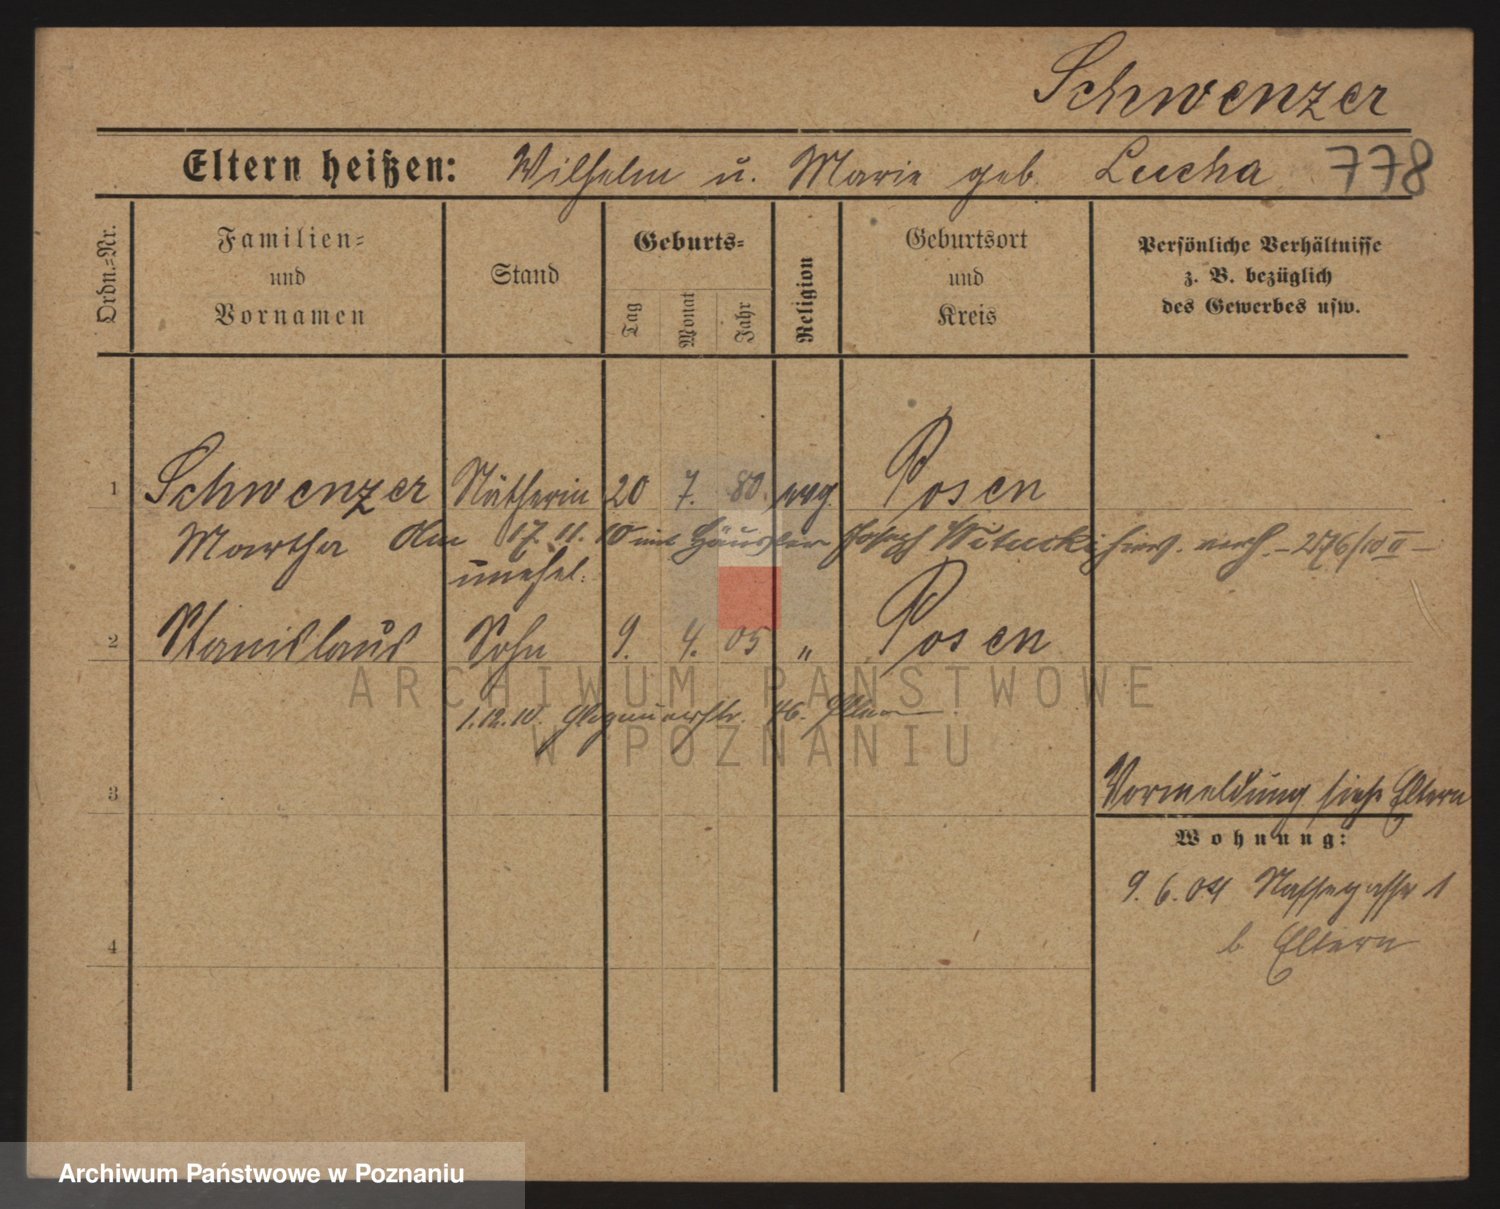 Schwenzer
Eltern heißen: Wilhelm u. Marie geb. Lucha 778
Ordn.-Nr.
Familien-
und
Vornamen
Stand
Geburts-
Tag
Monat
Jahr
Religion
Geburtsort
und
Kreis
Persönliche Verhältnisse
z. B. bezüglich
des Gewerbes usw.
1 Schwenzer Nätherin 20 7. 80. evg. Posen
Martha Am 17. 11. 10 mit Häusler Joseph hier. verh. - 276/10 II -
unehel.
2 Stanislaus Sohn 9. 4. 05 " Posen
ARCHIWUM PAŃSTWOWE
1.12.10. Glogauerstr. 46. Eltern.
W POZNANIU
3 Vormeldung siehe Eltern
Wohnung:
9. 6. 04 Nassegasse 1
4 b. Eltern
Archiwum Państwowe w Poznaniu